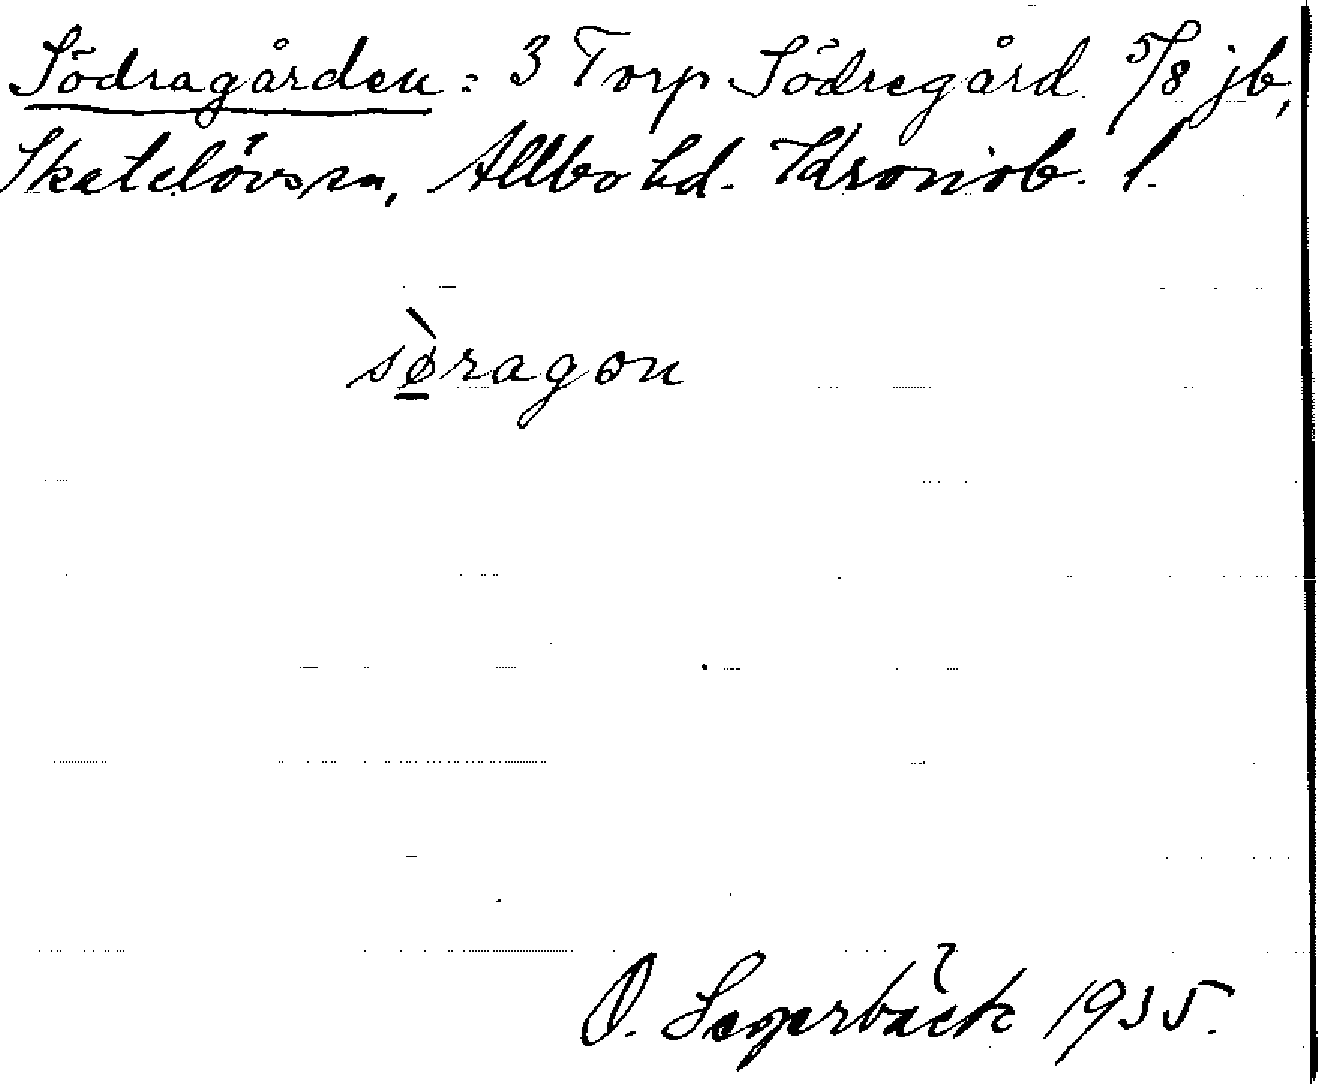 Södragården: 3 Torp Södregård 5/8 jb,
Skatelövs sn, Allbo hd. Kronob. l.
sø̀ragon
O. Segerbäck 1935.